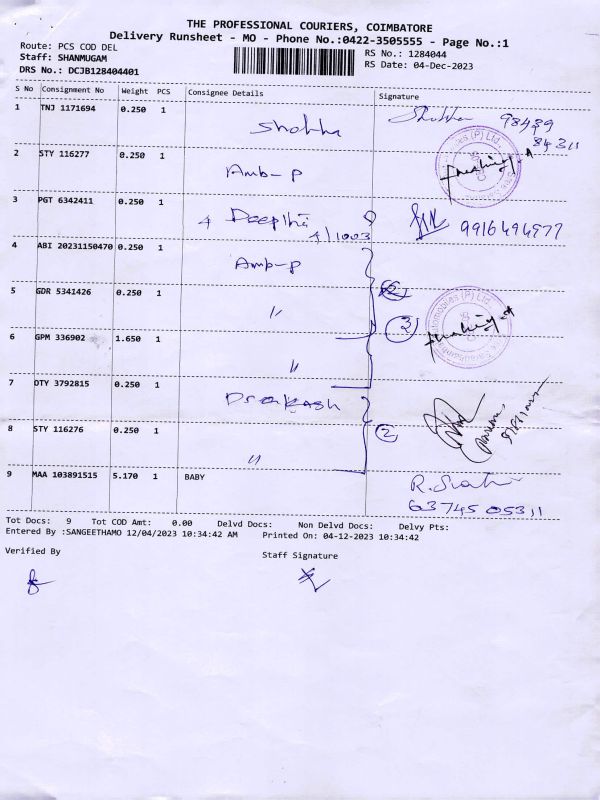 THE PROFESSIONAL COURIERS, COIMBATORE
Delivery Runsheet - MO - Phone No.:0422-3505555 - Page No.:1
Route: PCS COD DEL
RS No.: 1284044
Staff: SHANMUGAM
RS Date: 04-Dec-2023
DRS No.: DCJB128404401
S No Consignment No Weight PCS Consignee Details Signature
1 TNJ 1171694 0.250 1 Shobha 98439
84311
2 STY 116277 0.250 1 Amb-p
(P) Ltd.
3 PGT 6342411 0.250 1 4 Deeptha 9916494977
4/1003
4 ABI 20231150470 0.250 1 Amb-p
5 GDR 5341426 0.250 1 〃
Automobiles (P) Ltd.
3
6 GPM 336902 1.650 1 〃
7 DTY 3792815 0.250 1 Prakash
8 STY 116276 0.250 1 〃 2
9 MAA 103891515 5.170 1 BABY
63745 05311
Tot Docs: 9 Tot COD Amt: 0.00 Delvd Docs: Non Delvd Docs: Delvy Pts:
Entered By :SANGEETHAMO 12/04/2023 10:34:42 AM Printed On: 04-12-2023 10:34:42
Verified By
Staff Signature